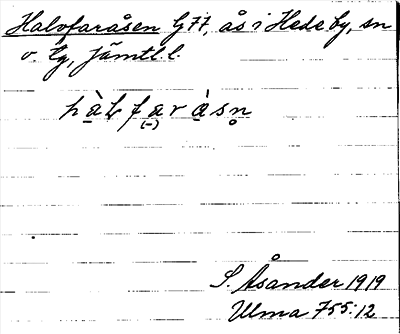 Halvfaråsen G77, ås i Hede by, sn
o. tg, Jämtl. l.
hàlfaràsn
(-)
S. Åsander 1919
Ulma 755:12